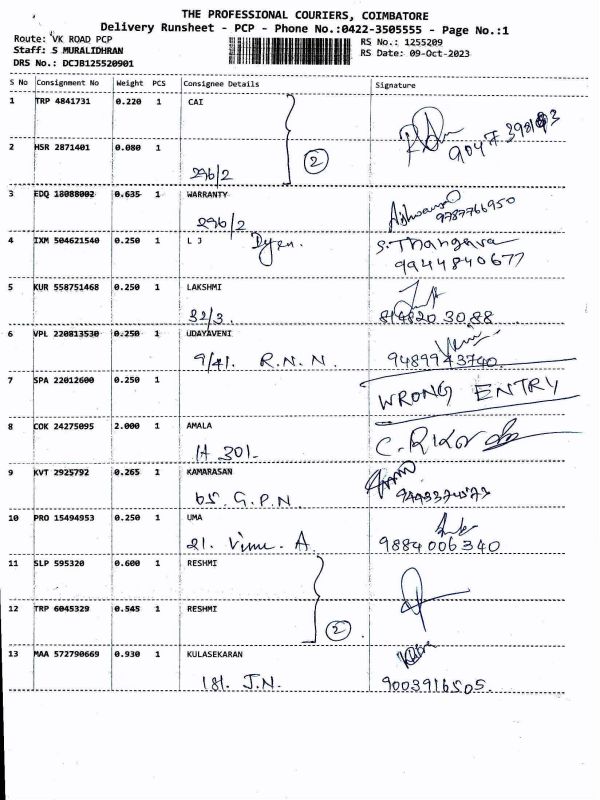 THE PROFESSIONAL COURIERS, COIMBATORE
Delivery Runsheet - PCP - Phone No.:0422-3505555 - Page No.:1
Route: VK ROAD PCP
RS No.: 1255209
Staff: S MURALIDHRAN
RS Date: 09-Oct-2023
DRS No.: DCJB125520901
S No Consignment No Weight PCS Consignee Details Signature
1 TRP 4841731 0.220 1 CAI
2 HSR 2871401 0.080 1
2
296/2
3 EDQ 18088002 0.635 1 WARRANTY
296/2
9787766950
4 IXM 504621540 0.250 1 L J
S. Thangava
9944840677
5 KUR 558751468 0.250 1 LAKSHMI
32/3.
814820 30 88
6 VPL 220813530 0.250 1 UDAYAVENI
9/41. R.N.N. 9489943740
7 SPA 22012600 0.250 1
WRONG ENTRY
8 COK 24275095 2.000 1 AMALA
H 301-
9 KVT 2925792 0.265 1 KAMARASAN
65. G.P.N.
10 PRO 15494953 0.250 1 UMA
21. A. 9884006340
11 SLP 595320 0.600 1 RESHMI
12 TRP 6045329 0.545 1 RESHMI
2
13 MAA 572790669 0.930 1 KULASEKARAN
181. J.N. 9003916505.